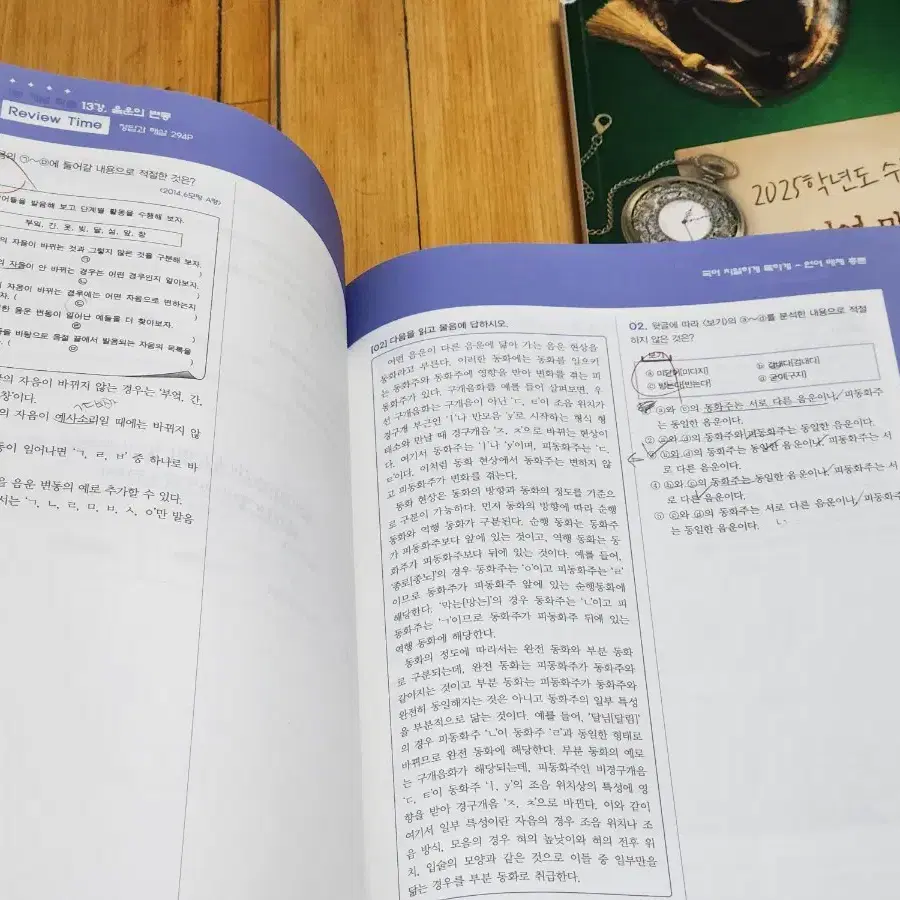 13강. 음운의 변동
Review Time
정답과 해설 294P
㉠~㉤에 들어갈 내용으로 적절한 것은?
<2014.6모평 A형>
단어들을 발음해 보고 단계별 활동을 수행해 보자.
부엌, 간, 옷, 빚, 달, 섬, 앞, 창
의 자음이 바뀌는 것과 그렇지 않은 것을 구분해 보자.
㉠
자음이 안 바뀌는 경우는 어떤 경우인지 알아보자.
㉡
자음이 바뀌는 경우에는 어떤 자음으로 변하는지
자. ( ㉢ )
한 음운 변동이 일어난 예들을 더 찾아보자.
㉣
를 바탕으로 음절 끝에서 발음되는 자음의 목록을
. ( ㉤ )
의 자음이 바뀌지 않는 경우는 '부엌, 간,
창'이다.
의 자음이 예사소리일 때에는 바뀌지 않
동이 일어나면 'ㄱ, ㄹ, ㅂ' 중 하나로 바
음운 변동의 예로 추가할 수 있다.
서는 'ㄱ, ㄴ, ㄹ, ㅁ, ㅂ, ㅅ, ㅇ'만 발음
2025학년도 수
국어 치밀하게 독하게 - 언어 매체 총론
[02] 다음을 읽고 물음에 답하시오.
어떤 음운이 다른 음운에 닮아 가는 음운 현상을
동화라고 부른다. 이러한 동화에는 동화를 일으키
는 동화주와 동화주에 영향을 받아 변화를 겪는 피
동화주가 있다. 구개음화를 예를 들어 살펴보면, 우
선 구개음화는 구개음이 아닌 'ㄷ, ㅌ'이 조음 위치가
경구개 부근인 'ㅣ'나 반모음 'y'로 시작하는 형식 형
태소와 만날 때 경구개음 'ㅈ, ㅊ'으로 바뀌는 현상이
다. 여기서 동화주는 'ㅣ'나 'y'이며, 피동화주는 'ㄷ,
ㅌ'이다. 이처럼 동화 현상에서 동화주는 변하지 않
고 피동화주가 변화를 겪는다.
동화 현상은 동화의 방향과 동화의 정도를 기준으
로 구분이 가능하다. 먼저 동화의 방향에 따라 순행
동화와 역행 동화가 구분된다. 순행 동화는 동화주
가 피동화주보다 앞에 있는 것이고, 역행 동화는 동
화주가 피동화주보다 뒤에 있는 것이다. 예를 들어,
'종로[종노]'의 경우 동화주는 'ㅇ'이고 피동화주는 'ㄹ'
이므로 동화주가 피동화주 앞에 있는 순행동화에
해당한다. '막는[망는]'의 경우 동화주는 'ㄴ'이고 피
동화주는 'ㄱ'이므로 동화주가 피동화주 뒤에 있는
역행 동화에 해당한다.
동화의 정도에 따라서는 완전 동화와 부분 동화
로 구분되는데, 완전 동화는 피동화주가 동화주와
같아지는 것이고 부분 동화는 피동화주가 동화주와
완전히 동일해지는 것은 아니고 동화주의 일부 특성
을 부분적으로 닮는 것이다. 예를 들어, '달님[달림]'
의 경우 피동화주 'ㄴ'이 동화주 'ㄹ'과 동일한 형태로
바뀌므로 완전 동화에 해당한다. 부분 동화의 예로
는 구개음화가 해당되는데, 피동화주인 비경구개음
'ㄷ, ㅌ'이 동화주 'ㅣ, y'의 조음 위치상의 특성에 영
향을 받아 경구개음 'ㅈ, ㅊ'으로 바뀐다. 이와 같이
여기서 일부 특성이란 자음의 경우 조음 위치나 조
음 방식, 모음의 경우 혀의 높낮이와 혀의 전후 위
치, 입술의 모양과 같은 것으로 이들 중 일부만을
닮는 경우를 부분 동화로 취급한다.
02. 윗글에 따라 <보기>의 ⓐ~ⓓ를 분석한 내용으로 적절
하지 않은 것은?
보기
ⓐ 미닫이[미다지]
ⓒ 밭는다[반는다]
ⓓ 굳이[구지]
① ⓐ와 ⓒ의 동화주는 서로 다른 음운이나, 피동화주
는 동일한 음운이다.
② ⓐ와 ⓓ의 동화주와 피동화주는 동일한 음운이다.
③ ⓑ와 ⓓ의 동화주는 동일한 음운이나, 피동화주는 서
로 다른 음운이다.
④ ⓑ와 ⓒ의 동화주는 동일한 음운이나, 피동화주는 서
로 다른 음운이다.
⑤ ⓒ와 ⓓ의 동화주는 서로 다른 음운이나, 피동화주
는 동일한 음운이다.